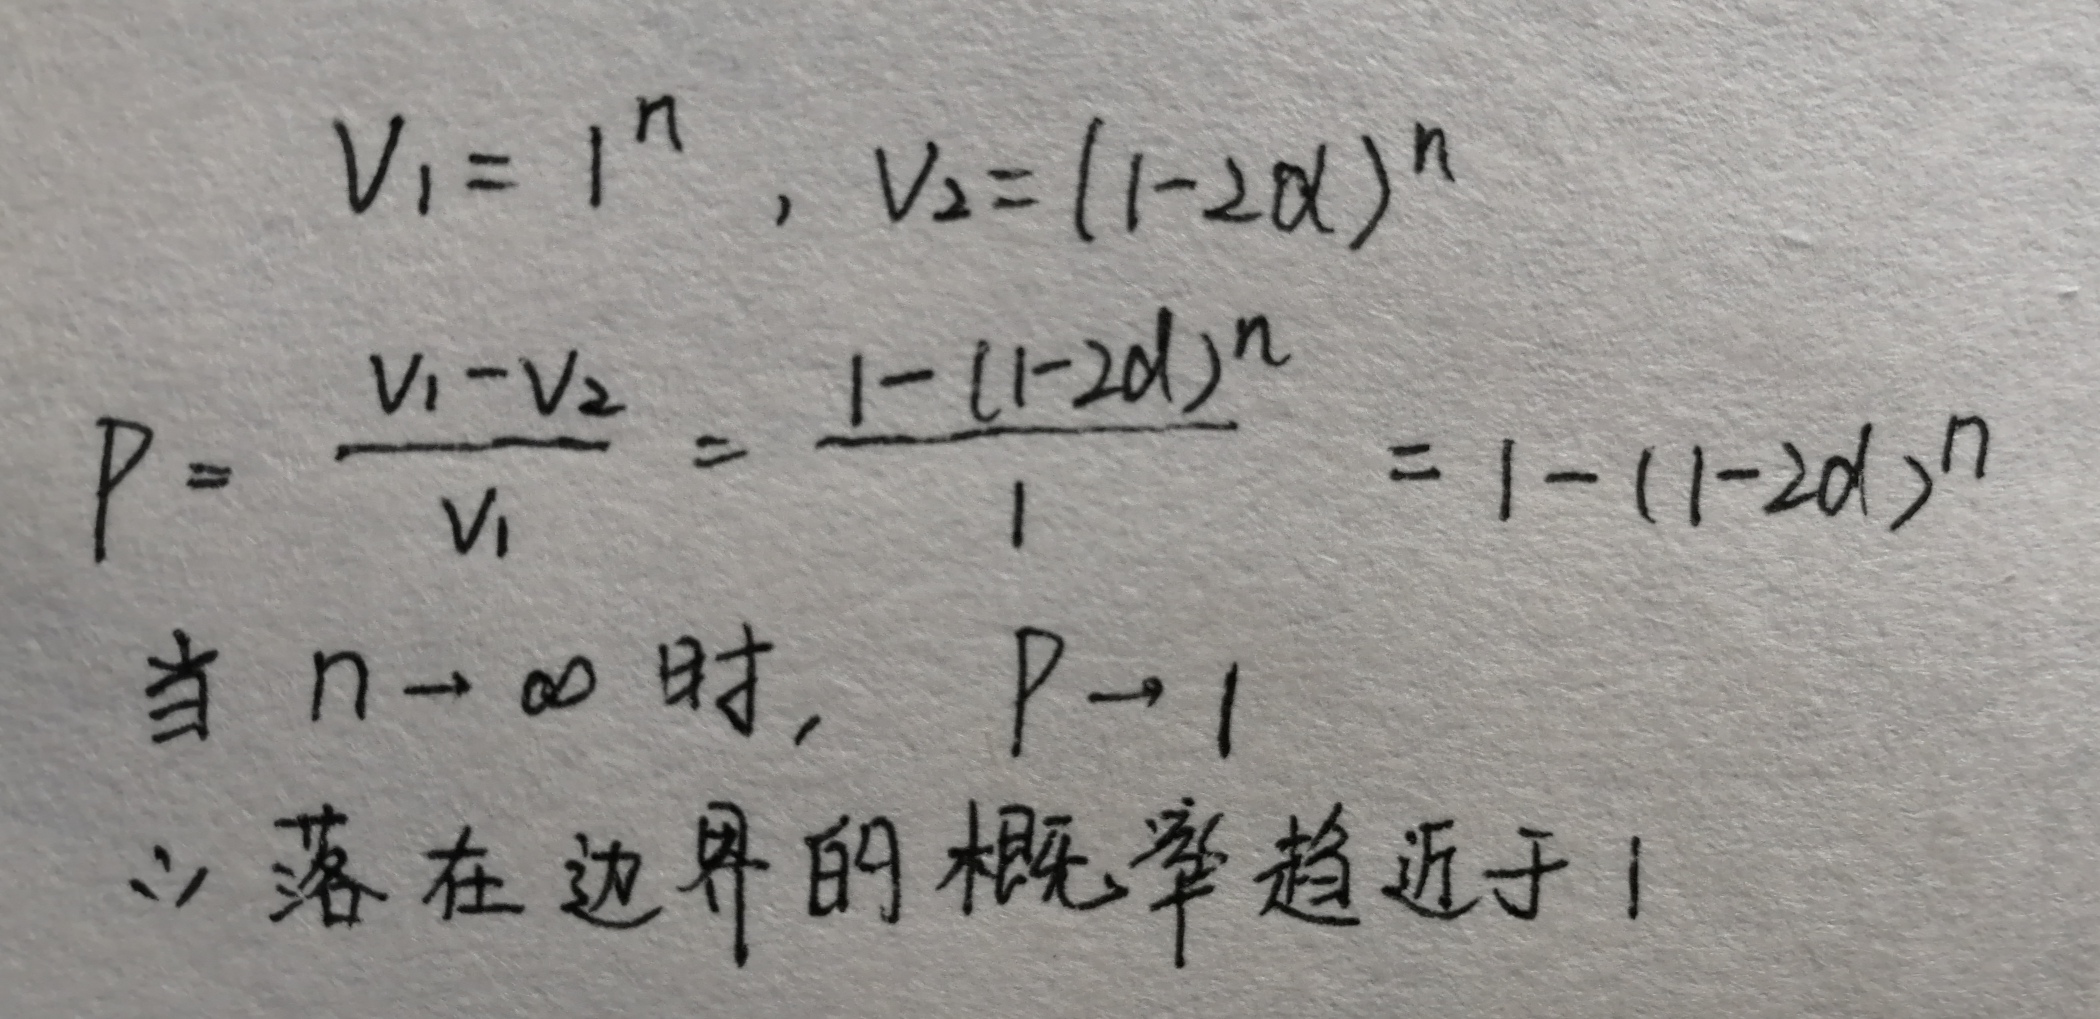 V₁ = 1ⁿ , V₂ = (1-2α)ⁿ
P = (V₁-V₂)/V₁ = (1-(1-2α)ⁿ)/1 = 1-(1-2α)ⁿ
当 n→∞ 时, P→1
∴ 落在边界的概率趋近于1